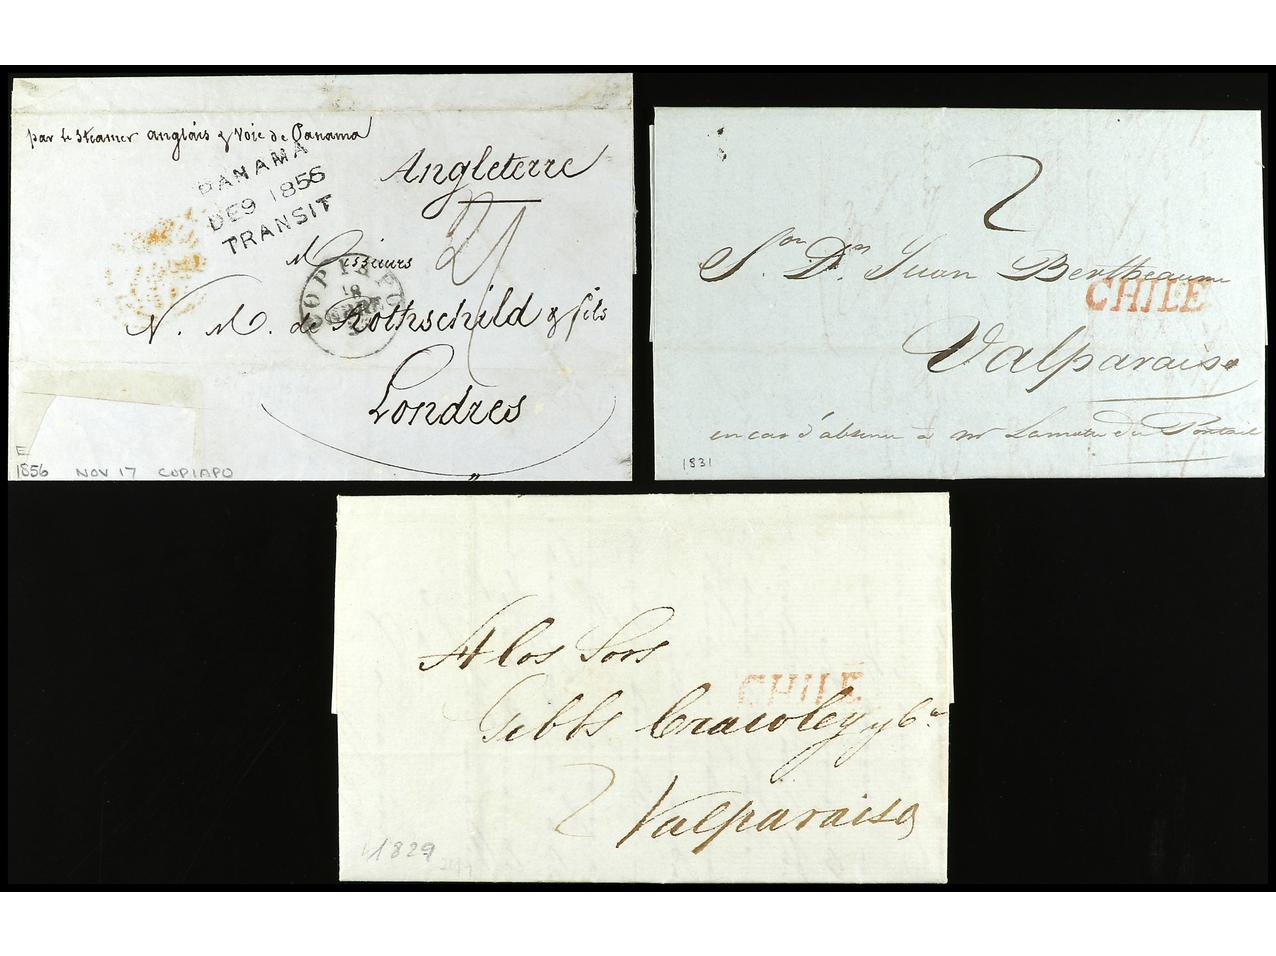 par le Steamer anglais & Voie de Panama
PANAMA
DE9 1856
TRANSIT
Angleterre
Messieurs
COPIAPO
18
N. M. de Rothschild & fils
Londres
E
1856 NOV 17 COPIAPO
2
Sor. Dn. Juan Bertheaume
CHILE
Valparaiso
en cas d'absence à mr Lamotte du Portail
1831
A los Sors
CHILE
Gibbs Crawley y Ca
2
Valparaiso
1829